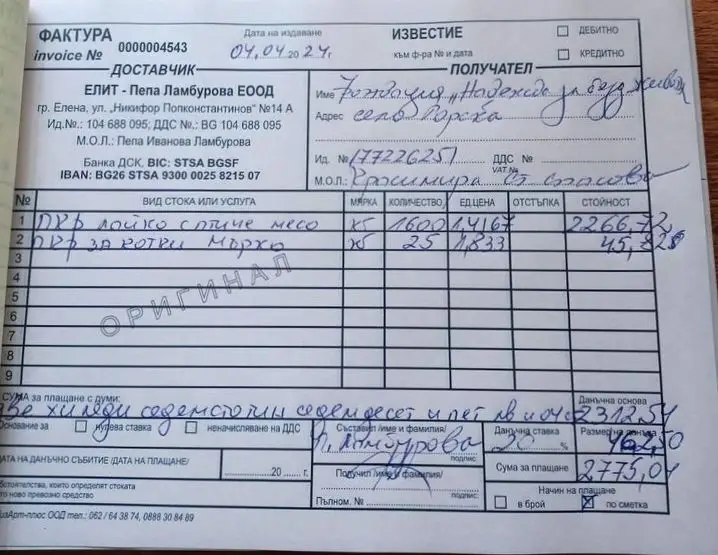 ФАКТУРА
invoice № 0000004543
Дата на издаване
04.04.2024г.
ИЗВЕСТИЕ
към ф-ра № и дата
ДЕБИТНО
КРЕДИТНО
ДОСТАВЧИК
ЕЛИТ - Пепа Ламбурова ЕООД
гр. Елена, ул. „Никифор Попконстантинов" №14 А
Ид.№.: 104 688 095; ДДС №.: BG 104 688 095
М.О.Л.: Пепа Иванова Ламбурова
Банка ДСК, BIC: STSA BGSF
IBAN: BG26 STSA 9300 0025 8215 07
ПОЛУЧАТЕЛ
Име Фондация „Надежда за безд. животни
Адрес село Горска
Ид. № 177226251 ДДС № VAT №
М.О.Л.: Красимира Ст. Спасова
№ ВИД СТОКА ИЛИ УСЛУГА МЯРКА КОЛИЧЕСТВО ЕД.ЦЕНА ОТСТЪПКА СТОЙНОСТ
1 ПКР лайко с птиче месо кг 1600 1,4167 2266,72
2 ПКР за котки Марко кг 25 1,833 45,825
3
4
5
6
7
8
9
ОРИГИНАЛ
СУМА за плащане с думи: Данъчна основа
две хиляди седемстотин седемдесет и пет лв и 04ст 2312,54
Основание за нулева ставка неначисляване на ДДС
Съставил /име и фамилия/ П. Ламбурова подпис:
Данъчна ставка 20 %
Размер на данъка 462,50
ДАТА НА ДАНЪЧНО СЪБИТИЕ /ДАТА НА ПЛАЩАНЕ/
.20 г.
Получил /име и фамилия/
Сума за плащане 2775,04
бстоятелства, които определят стоката
то ново превозно средство
Пълном. № подпис:
Начин на плащане
в брой по сметка
изАрт-плюс ООД тел.: 062 / 64 38 74, 0888 30 84 89